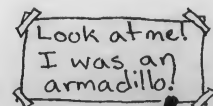 Look at me!
I was an
armadillo!